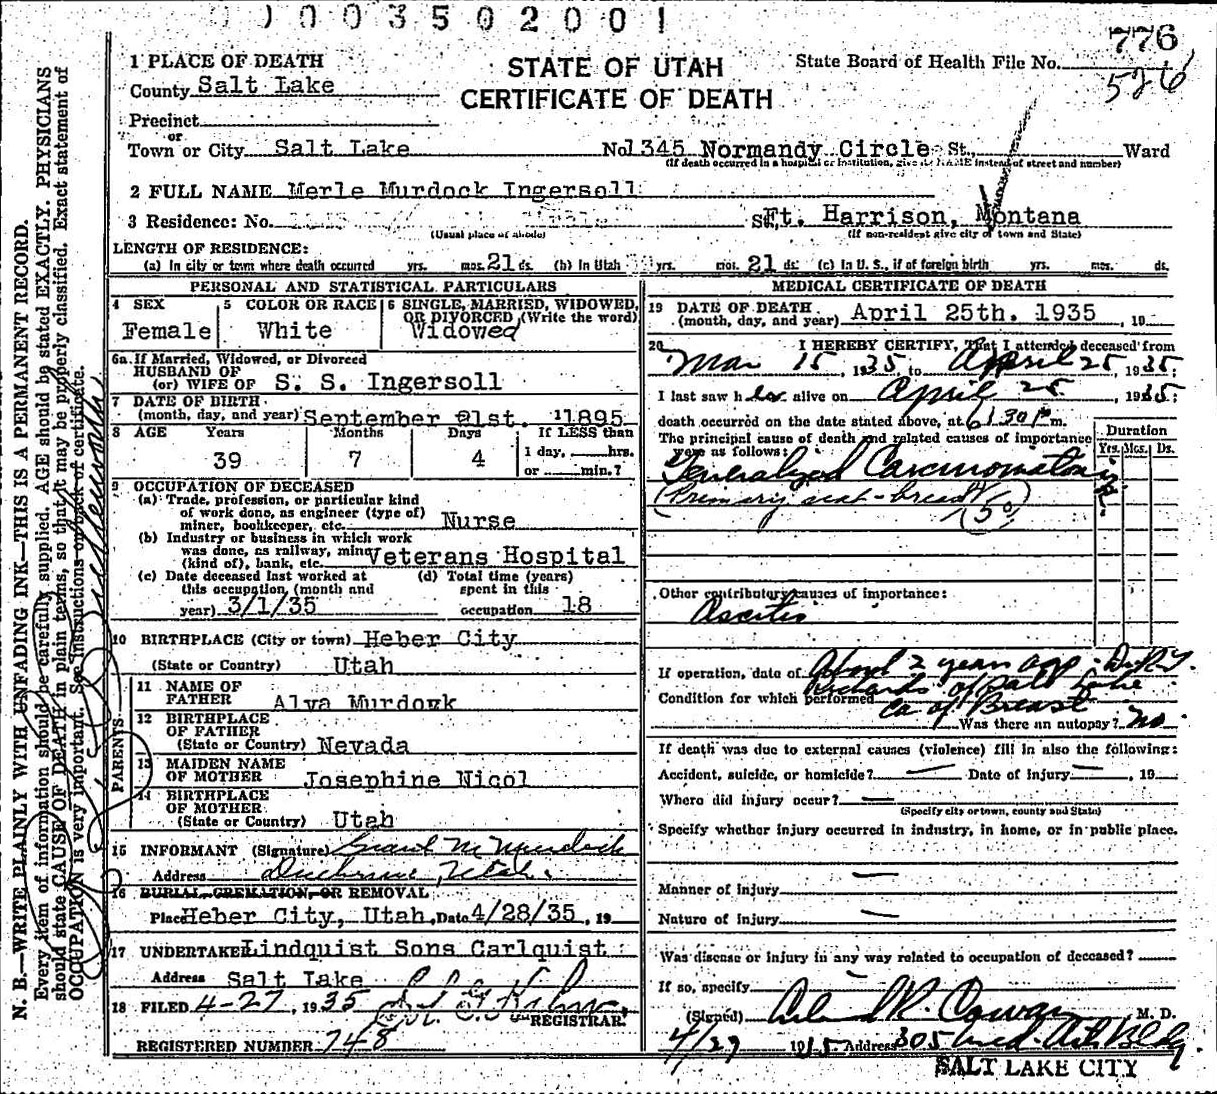 0003502001
776
526
1 PLACE OF DEATH
STATE OF UTAH
State Board of Health File No.
County Salt Lake
CERTIFICATE OF DEATH
Precinct
or
Town or City Salt Lake No. 1345 Normandy Circle St., Ward
(If death occurred in a hospital or institution, give its NAME instead of street and number)
2 FULL NAME Merle Murdock Ingersoll
3 Residence: No. St. Ft. Harrison, Montana
(Usual place of abode) (If non-resident give city or town and State)
LENGTH OF RESIDENCE:
(a) In city or town where death occurred yrs. mos. 21 ds. (b) In Utah yrs. mos. 21 ds. (c) In U. S., if of foreign birth yrs. mos. ds.
PERSONAL AND STATISTICAL PARTICULARS
4 SEX 5 COLOR OR RACE 6 SINGLE, MARRIED, WIDOWED, OR DIVORCED (Write the word)
Female White Widowed
6a If Married, Widowed, or Divorced
HUSBAND OF
(or) WIFE OF S. S. Ingersoll
7 DATE OF BIRTH
(month, day, and year) September 21st. 1895
8 AGE Years Months Days If LESS than
39 7 4 1 day, hrs.
or min.?
9 OCCUPATION OF DECEASED
(a) Trade, profession, or particular kind
of work done, as engineer (type of)
miner, bookkeeper, etc. Nurse
(b) Industry or business in which work
was done, as railway, mine
(kind of), bank, etc. Veterans Hospital
(c) Date deceased last worked at (d) Total time (years)
this occupation (month and spent in this
year) 3/1/35 occupation 18
10 BIRTHPLACE (City or town) Heber City
(State or Country) Utah
PARENTS
11 NAME OF
FATHER Alva Murdock
12 BIRTHPLACE
OF FATHER
(State or Country) Nevada
13 MAIDEN NAME
OF MOTHER Josephine Nicol
14 BIRTHPLACE
OF MOTHER
(State or Country) Utah
15 INFORMANT (Signature) M Murdock
Address Duchesne, Utah.
16 BURIAL, CREMATION, OR REMOVAL
Place Heber City, Utah, Date 4/28/35, 19
17 UNDERTAKER Lindquist Sons Carlquist
Address Salt Lake
18 FILED 4-27, 1935
REGISTRAR.
REGISTERED NUMBER 748
MEDICAL CERTIFICATE OF DEATH
19 DATE OF DEATH
(month, day, and year) April 25th. 1935, 19
20 I HEREBY CERTIFY, That I attended deceased from
Mar 15, 1935, to April 25, 1935;
I last saw her alive on April 25, 1935;
death occurred on the date stated above, at 6:30 P m.
The principal cause of death and related causes of importance
were as follows:
Duration
Yrs. Mos. Ds.
Generalized Carcinomatosis
(Primary seat-breast)
(50)
Other contributory causes of importance:
Ascites
If operation, date of About 2 years ago - Dr.
Richards of Salt Lake
Condition for which performed Ca of Breast
Was there an autopsy? no.
If death was due to external causes (violence) fill in also the following:
Accident, suicide, or homicide? Date of injury , 19
Where did injury occur?
(Specify city or town, county and State)
Specify whether injury occurred in industry, in home, or in public place.
Manner of injury
Nature of injury
Was disease or injury in any way related to occupation of deceased?
If so, specify
(Signed) M. D.
4/27 1935 Address 305 Med. Arts Bldg.
SALT LAKE CITY
N. B.—WRITE PLAINLY WITH UNFADING INK—THIS IS A PERMANENT RECORD.
Every item of information should be carefully supplied. AGE should be stated EXACTLY. PHYSICIANS
should state CAUSE OF DEATH in plain terms, so that it may be properly classified. Exact statement of
OCCUPATION is very important. See instructions on back of certificate.